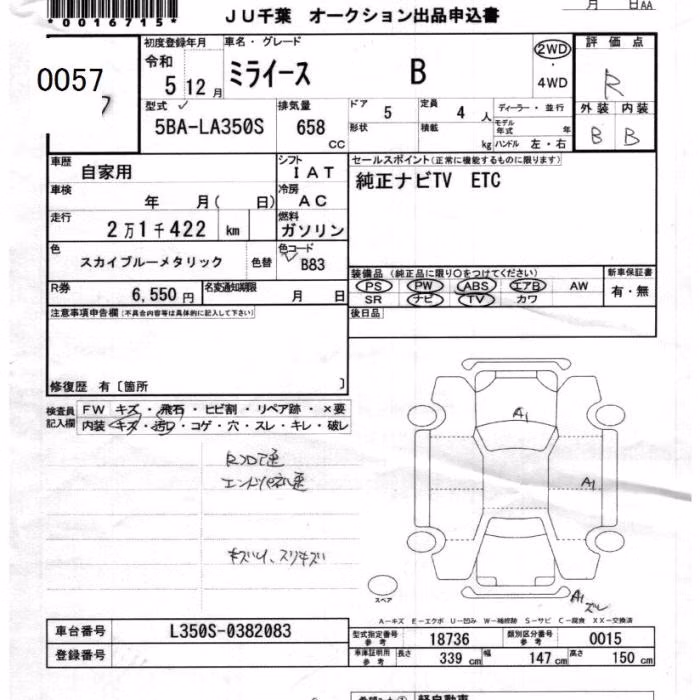 *0016715*
月 日AA
JU千葉 オークション出品申込書
0057
初度登録年月
令和
5 12 月
車名・グレード
ミライース B
2WD
・
4WD
評価点
R
型式
5BA-LA350S
排気量
658
cc
ドア
5
定員
4 人
形状
積載
kg
ディーラー・並行
モデル年式 年
ハンドル 左・右
外装 内装
B B
車歴
自家用
シフト
IAT
車検
年 月( 日)
冷房
AC
走行
2万1千422 km
燃料
ガソリン
色
スカイブルーメタリック
色替
色コード
B83
R券
6,550 円
名変通知期限
月 日
セールスポイント(正常に機能するものに限ります)
純正ナビTV ETC
装備品 (純正品に限り○をつけてください)
PS PW ABS エアB AW
SR ナビ TV カワ
新車保証書
有・無
後日品
注意事項申告欄(不具合内容等は具体的に記入して下さい)
修復歴 有〔箇所 〕
検査員記入欄
FW キズ・飛石・ヒビ割・リペア跡・×要
内装 キズ・汚れ・コゲ・穴・スレ・キレ・破レ
キズハリ、スリキズ
A1
A1
A1
ズレ
スペア
A-キズ E-エクボ U-凹み W-補修跡 S-サビ C-腐食 XX-交換済
車台番号
L350S-0382083
登録番号
型式指定番号参考
18736
類別区分番号参考
0015
車庫証明用参考
長さ
339 cm
幅
147 cm
高さ
150 cm
軽自動車